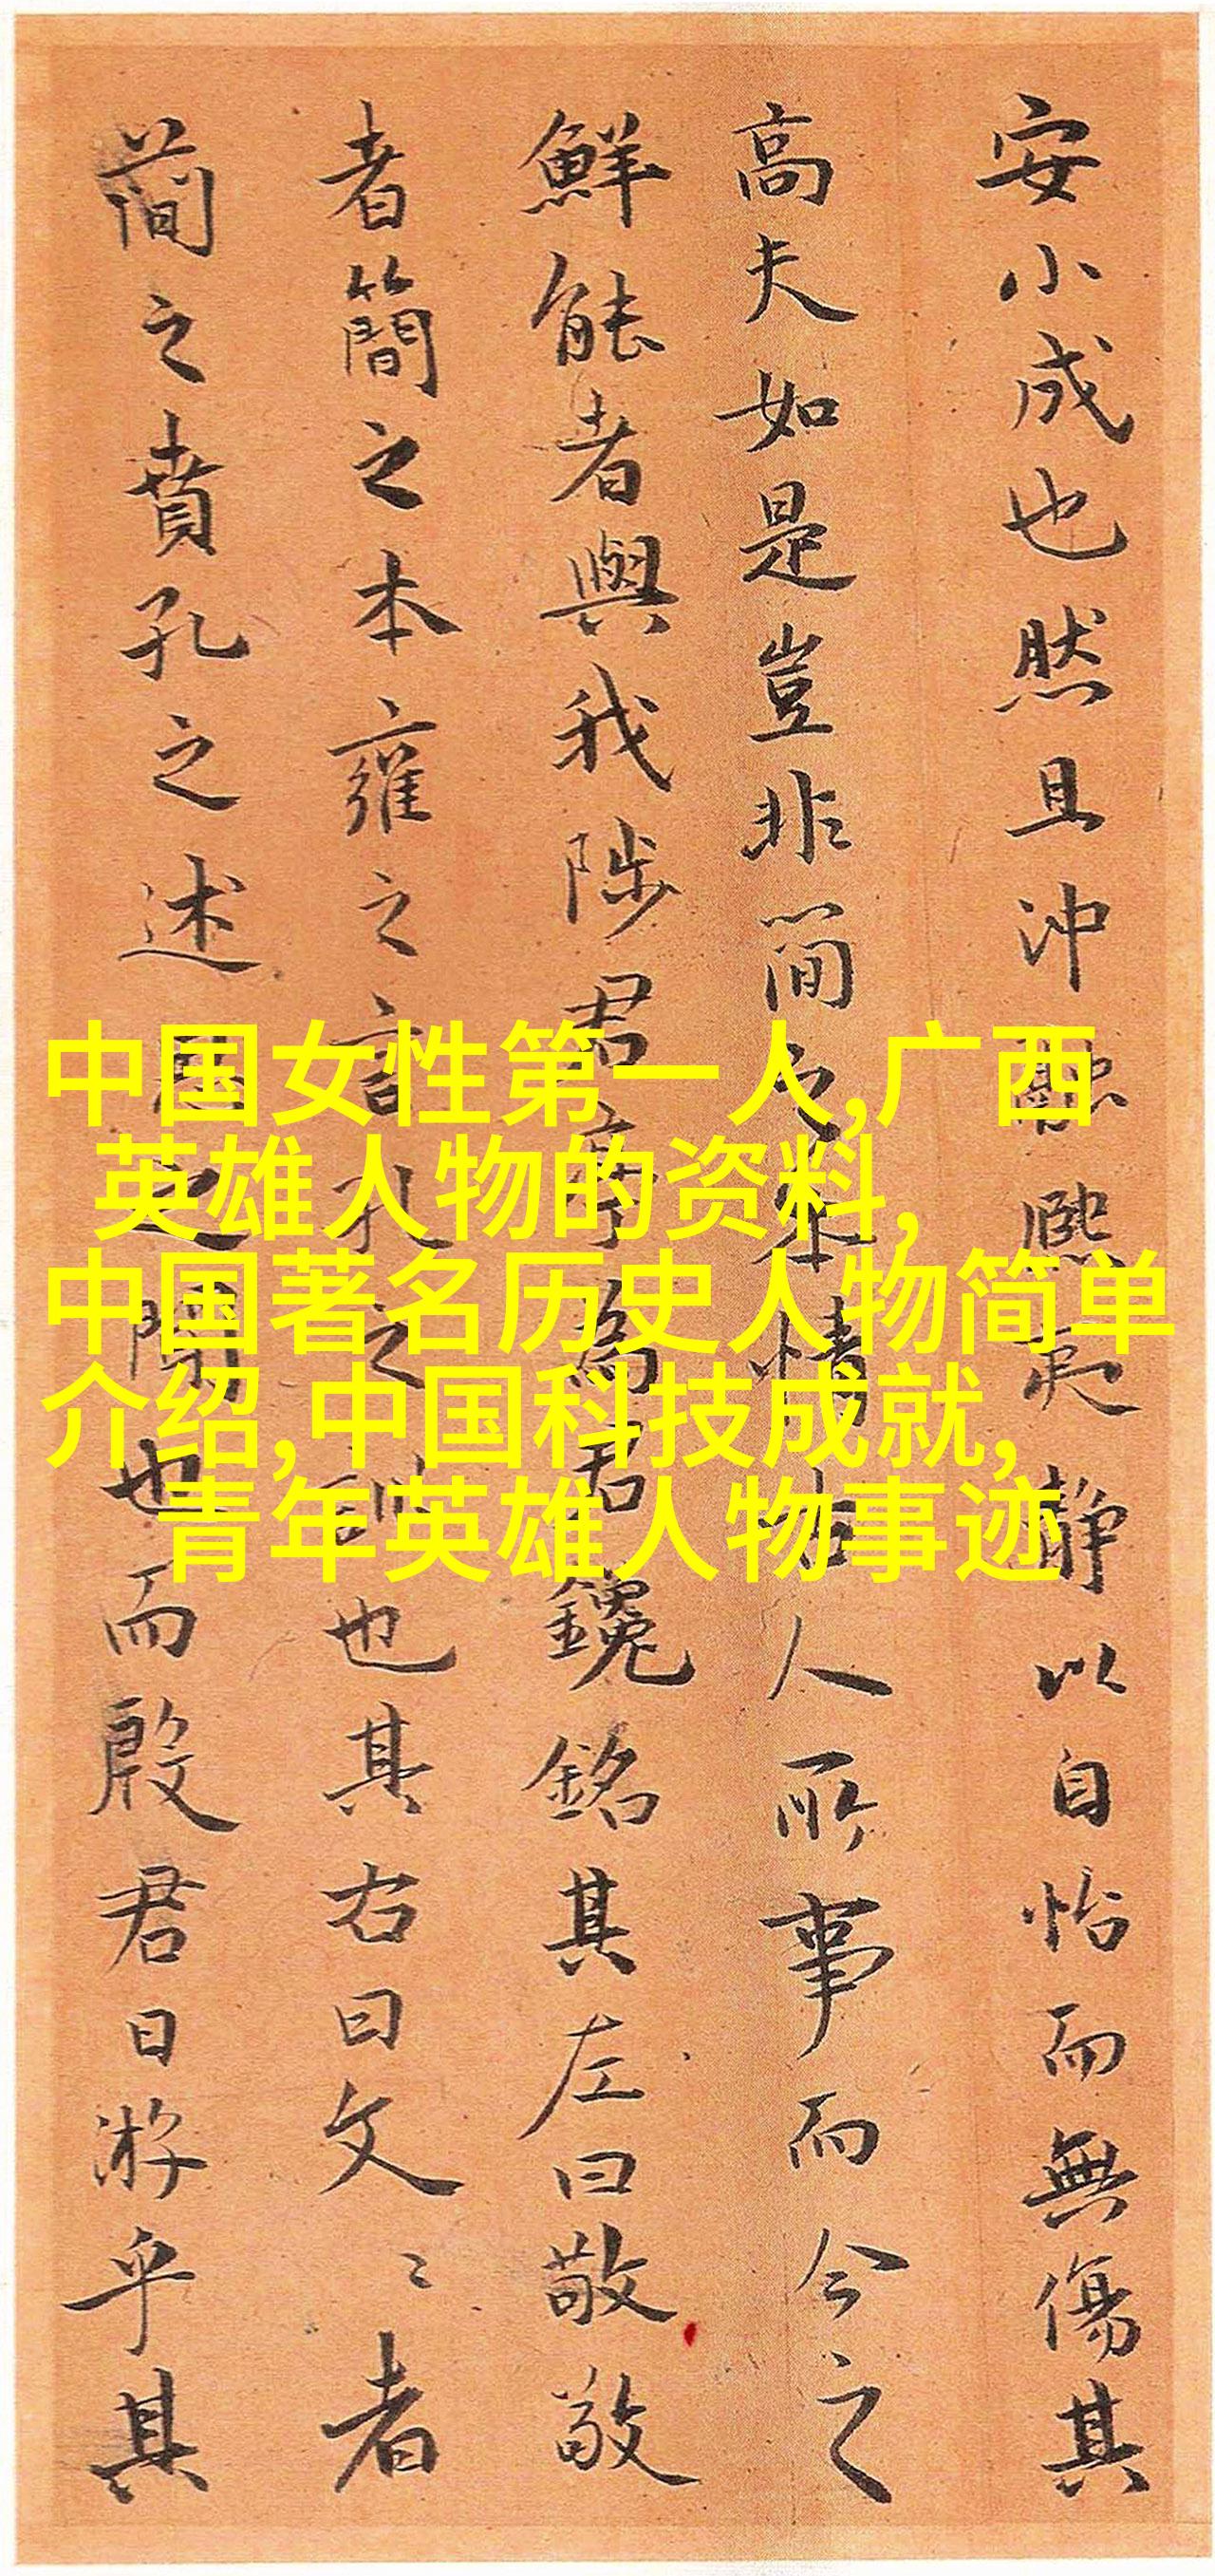 安小成也然且沖熙夷靜以自怡而無傷其
高夫如是豈非簡之本情古人所事而今之
鮮能者與我陟君為君鑱銘其左曰敬敬
者簡之本雍之言孔之也其右曰文〻者
簡之賁孔之述之聞也而殷君日游乎其
中国女性第一人,广西
英雄人物的资料,
中国著名历史人物简单
介绍,中国科技成就,
青年英雄人物事迹